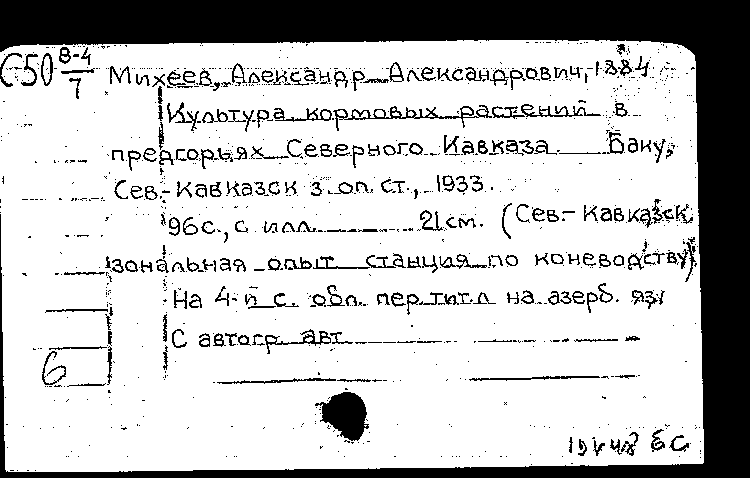 С50 В-4/7 Михеев, Александр Александрович, 1884
Культура кормовых растений в
предгорьях Северного Кавказа Баку,
Сев.-Кавказск з. оп. ст., 1933.
96с., с илл. 21см. (Сев-Кавказск.
зональная опыт станция по коневодству)
На 4-й с. обл. пер. тит. л на азерб. яз.
С автогр. авт
6